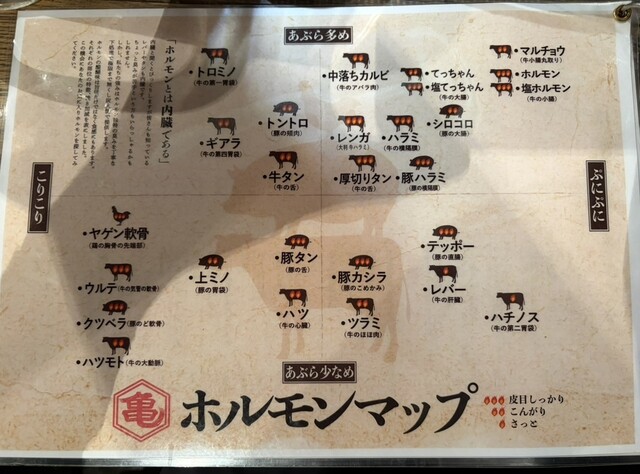 あぶら多め
「ホルモンとは内臓である」
・トロミノ
(牛の第一胃袋)
・中落ちカルビ
(牛のアバラ肉)
・マルチョウ
(牛小腸丸取り)
・てっちゃん
・塩てっちゃん
(牛の大腸)
・ホルモン
・塩ホルモン
(牛の小腸)
・ギアラ
(牛の第四胃袋)
・トントロ
(豚の頬肉)
・レンガ
(大判牛ハラミ)
・ハラミ
(牛の横隔膜)
・シロコロ
(豚の大腸)
・牛タン
(牛の舌)
・厚切りタン
(牛の舌)
・豚ハラミ
(豚の横隔膜)
こりこり
ぷにぷに
・ヤゲン軟骨
(鶏の胸骨の先端部)
・ウルテ(牛の気管の軟骨)
・クツベラ(豚のど軟骨)
・ハツモト(牛の大動脈)
・上ミノ
(豚の胃袋)
・豚タン
(豚の舌)
・ハツ
(牛の心臓)
・豚カシラ
(豚のこめかみ)
・ツラミ
(牛のほほ肉)
・テッポー
(豚の直腸)
・レバー
(牛の肝臓)
・ハチノス
(牛の第二胃袋)
あぶら少なめ
亀
ホルモンマップ
皮目しっかり
こんがり
さっと